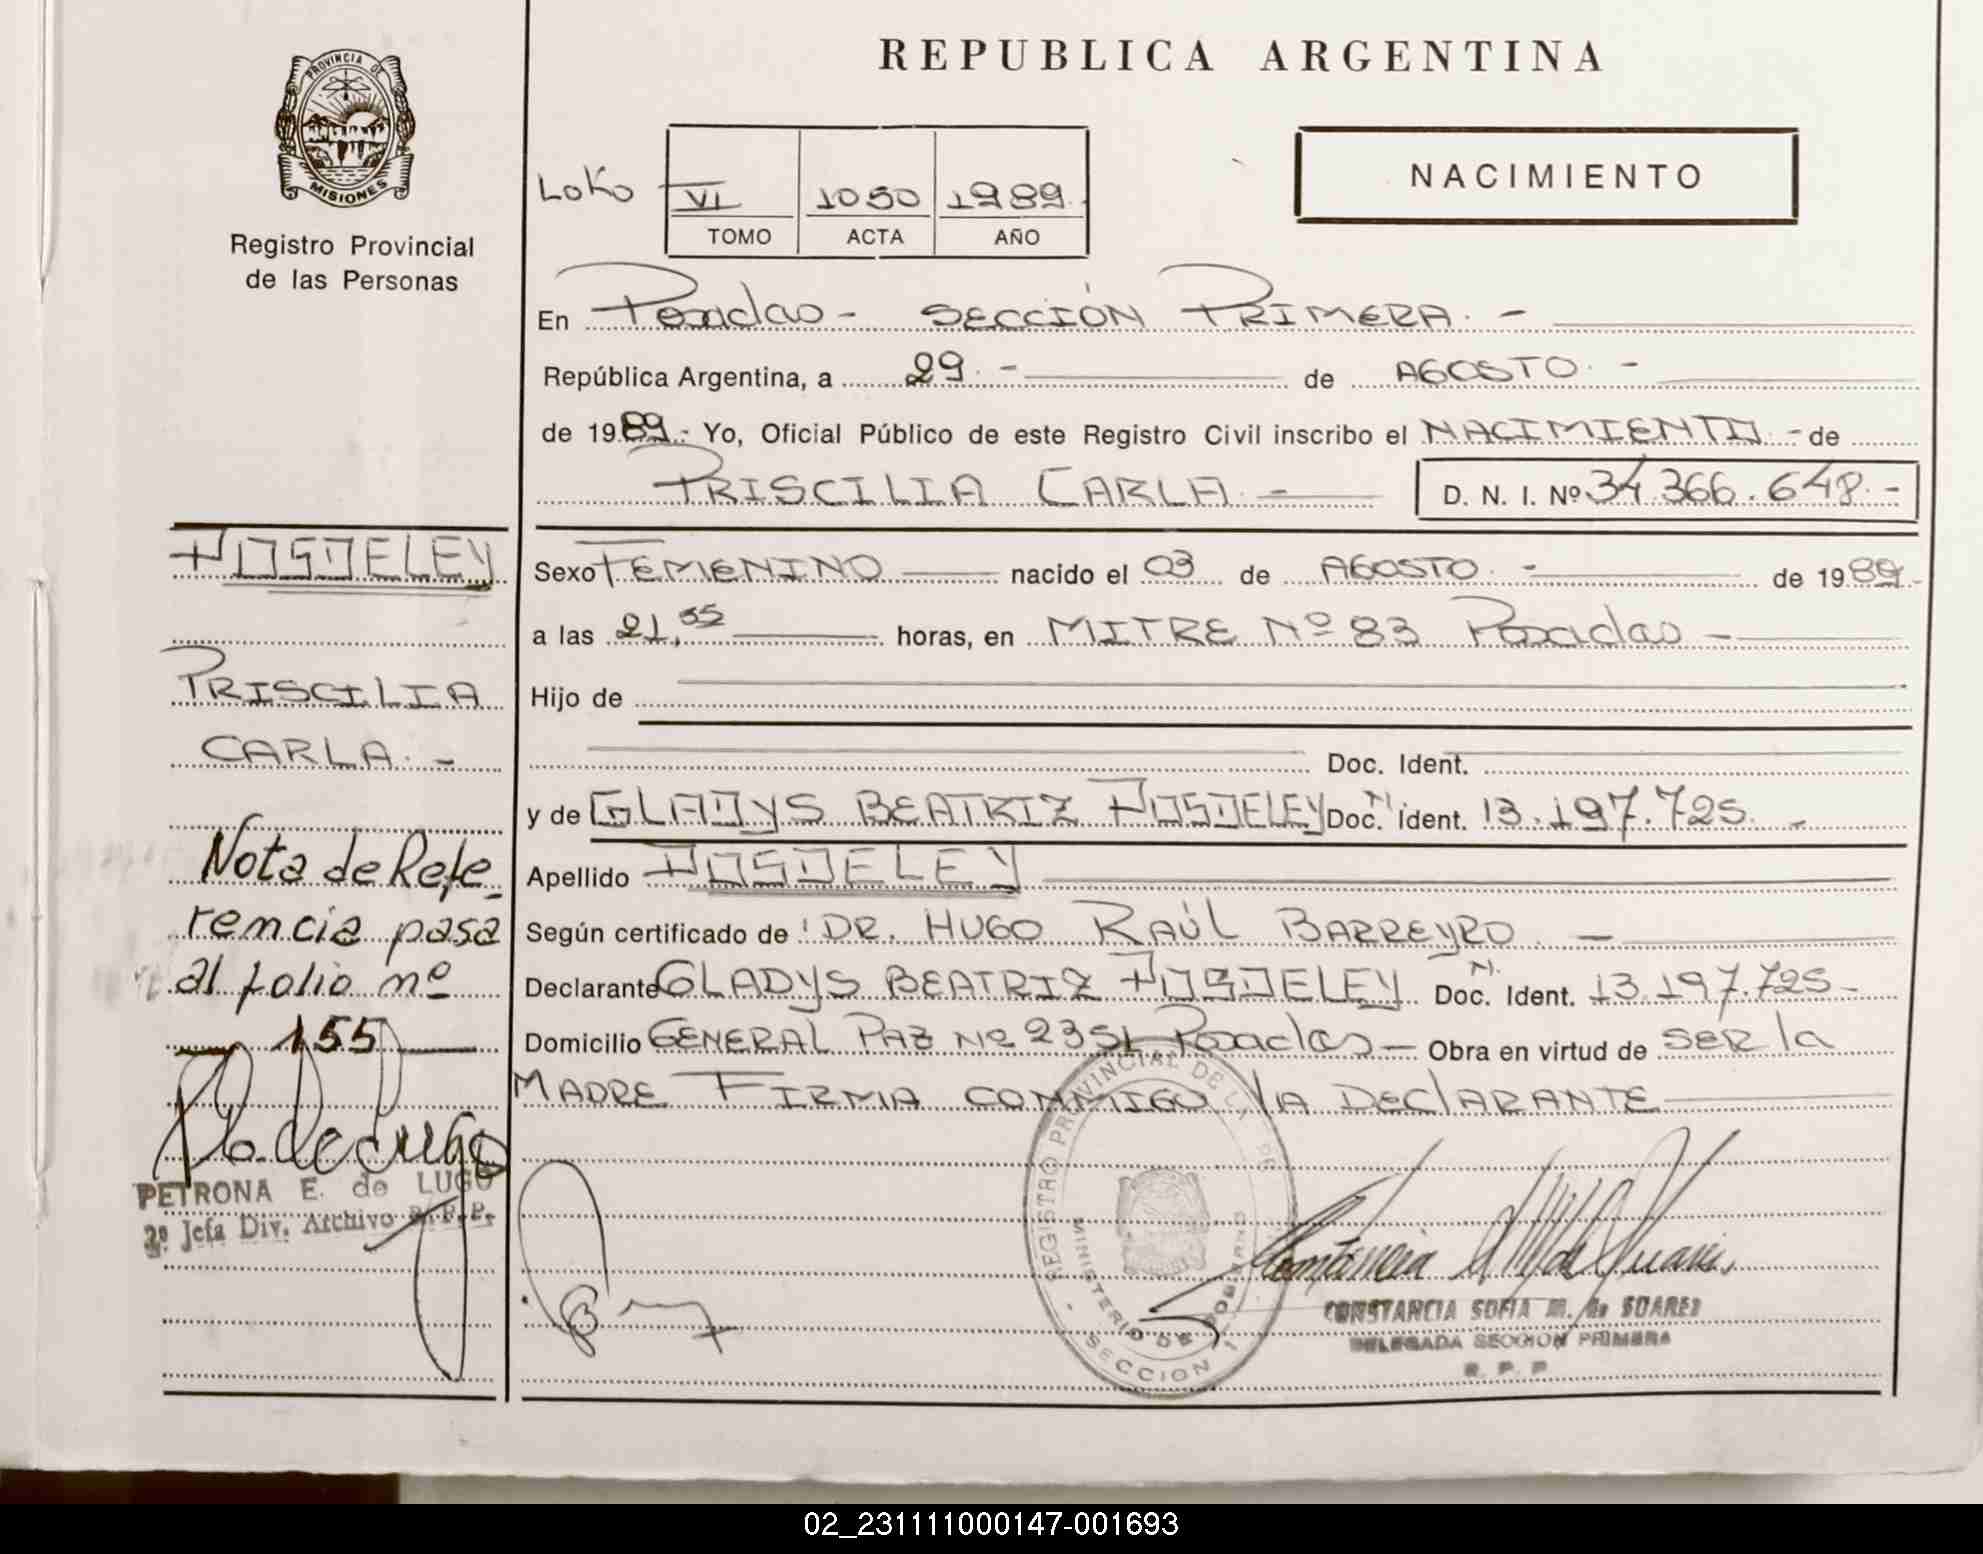 PROVINCIA DE
MISIONES
Registro Provincial
de las Personas
REPUBLICA ARGENTINA
NACIMIENTO
VI 1050 1989.
TOMO ACTA AÑO
En Posadas - SECCIÓN PRIMERA. -
República Argentina, a 29. - de AGOSTO. -
de 1989.- Yo, Oficial Público de este Registro Civil inscribo el NACIMIENTO.- de
PRISCILIA CARLA. - D. N. I. Nº 34.366.648.-
Sexo FEMENINO nacido el 03 de AGOSTO. - de 1989.-
a las 21,55 horas, en MITRE Nº 83 Posadas -
Hijo de
Doc. Ident.
y de GLADYS BEATRIZ POSDELEY Doc. N. Ident. 13.197.725. -
Apellido POSDELEY
Según certificado de: DR. HUGO RAÚL BARREYRO. -
Declarante GLADYS BEATRIZ POSDELEY. Doc. N. Ident. 13.197.725.-
Domicilio GENERAL PAZ Nº 2351 Posadas - Obra en virtud de SER la
MADRE FIRMA CONMIGO lA DEClARANTE
POSDELEY
PRISCILIA
CARLA. -
Nota de Refe-
rencia pasa
al folio nº
155
PETRONA E. de LUGO
2º Jefa Div. Archivo R. P. P.
REGISTRO PROVINCIAL DE
MINISTERIO DE GOBIERNO
SECCION 1
CONSTANCIA SOFIA M. de SUAREZ
DELEGADA SECCION PRIMERA
R. P. P.
02_231111000147-001693